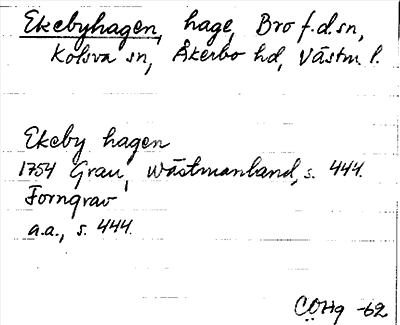 Ekebyhagen, hage, Bro f.d.sn,
Kolsva sn, Åkerbo hd, Västm. l.
Ekeby hagen
1754 Grau, Wästmanland, s. 444.
Forngrav
a.a., s. 444.
CÖHg -62